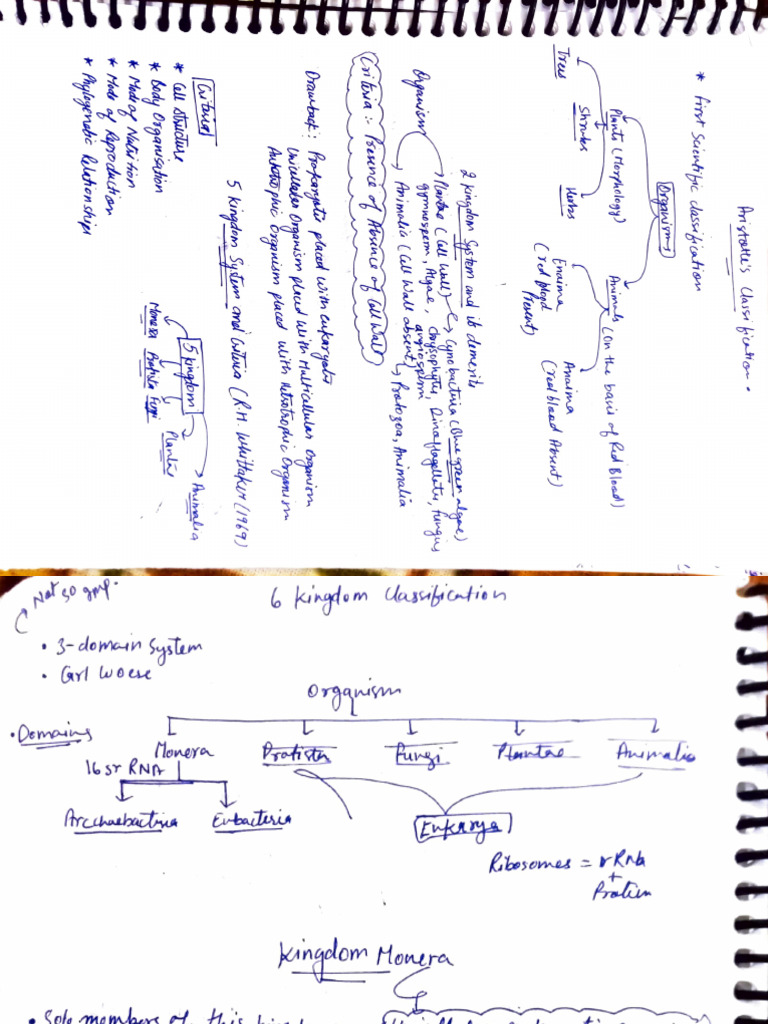 Aristotle's Classification.
* First Scientific classification
Organism
Plants (Morphology)
Animals (On the basis of Red Blood)
Trees
Shrubs
Herbs
Enaima
(red blood
Present)
Anaima
(red blood Absent)
2 kingdom System and its demerits
Organism
Plantae (Cell Wall)
Cynobacteria (Blue green algae)
gymnosperm, Algae, Chrysophytes, Dinoflagellates, Fungus
angiosperm
Animalia (Cell Wall absent)
Protozoa, Animalia
Criteria :- Presence of Absence of Cell Wall
Drawback : Prokaryote placed with eukaryote
Unicellular Organism placed with Multicellular Organism
Autotrophic Organism placed with Hetrotrophic Organism
5 kingdom System and Criteria (R.H. Whittaker (1969)
Criteria
* Cell Structure
* Body Organisation
* Mode of Nutrition
* Mode of Reproduction
* Phylogenetic Relationships
5 kingdom
Monera
Protista
Fungi
Plantae
Animalia
Not so imp.
6 kingdom Classification
• 3-domain System
• Carl Woese
Organism
• Domains
Monera
Protista
Fungi
Plantae
Animalia
16sr RNA
Archaebacteria
Eubacteria
Eukarya
Ribosomes = rRNA
+
Protien
Kingdom Monera
• Sole members of this